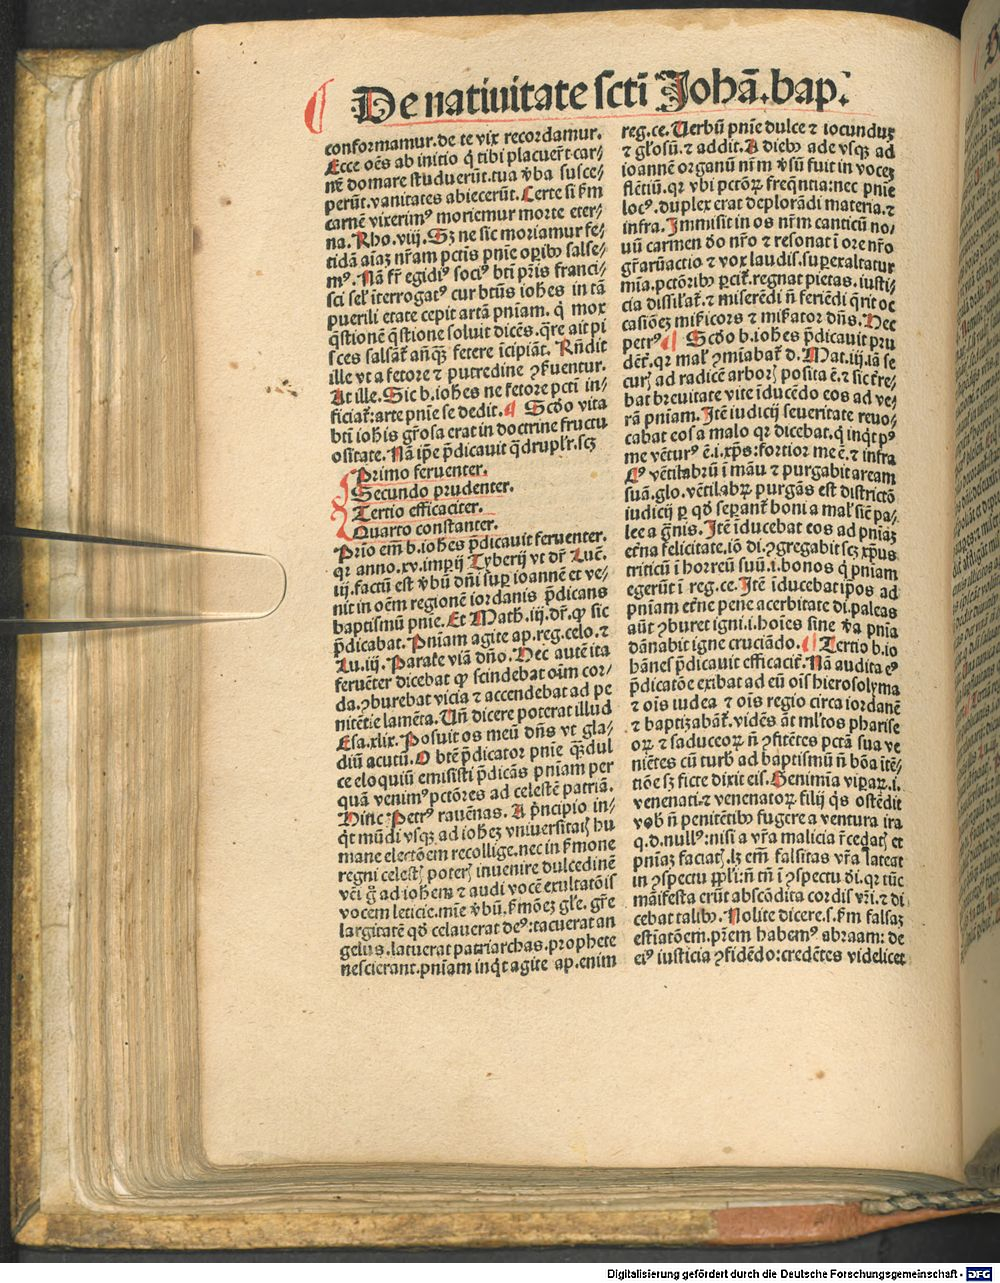 De natiuitate scti Johā.bap.
conformamur.de te vix recordamur.
Ecce oēs ab initio q̄ tibi placuer̄t car⸗
nē domare studuerūt.tua v̄ba susce⸗
perūt.vanitates abiecerūt. Certe si ẜm
carnē vixerimꝰ moriemur morte eter⸗
na. Rho.viij. Sꝫ ne sic moriamur fe⸗
tidā aīaꝫ nr̄am pctīs pnīe opibꝫ salse⸗
mꝰ. Nā fr̄ egidiꝰ sociꝰ bti pr̄is franci⸗
sci sel' īterrogatꝰ cur btūs iohēs in tā
puerili etate cepit artā pniam. q̄ mox
q̄stionē q̄stione soluit dicēs.q̄re ait pi
sces salsāt̄ anq̄ꝫ fetere īcipiāt. Rn̄dit
ille vt a fetore et putredine ꝯẜuentur.
At ille. Sic b.iohēs ne fetore pcti in⸗
ficiat̄:arte pnīe se dedit. ¶ Scd̄o vita
bti ioh̄is gr̄osa erat in doctrine fructu
ositate. Nā ip̄e p̄dicauit q̄druplr̄.scꝫ
Primo feruenter.
Secundo prudenter.
Tertio efficaciter.
Quarto constanter.
Prīo em̄ b.iohēs p̄dicauit feruenter.
qr anno.xv.imperij Tyberij vt dr̄ Luč.
iij.factū est v̄bū dn̄i suꝑ ioannē et ve⸗
nit in oēm regionē iordanis p̄dicans
baptismū pnīe. Et Math.iij.dr̄.ꝙ sic
p̄dicabat. Pniam agite ap.reg.celo.⁊
Lu.iij. Parate viā dn̄o. Nec autē ita
feruēter dicebat ꝙ scindebat oīm cor⸗
da.ꝯburebat vicia ⁊ accendebat ad pe
nitētie lamēta. Un̄ dicere poterat illud
Esa.xlix. Posuit os meū dn̄s vt gla⸗
diū acutū. O btē p̄dicator pnīe q̄ꝫ dul
ce eloquiū emisisti p̄dicās pniam per
quā venimꝰ pctōres ad celestē patriā.
Hinc Petrꝰ rauēnas. A p̄ncipio in⸗
q̄t mūdi vsqꝫ ad iohēꝫ vniuersitatꝭ hu
mane electōem recollige.nec in ẜmone
regni celestꝭ poterꝭ inuenire dulcedinē
vēi ḡ ad iohem ⁊ audi vocē exultatōis
vocem leticie.mīe v̄bū.ẜmōeꝫ gl'e. gr̄e
largitatē qd̄ celauerat deꝰ:tacuerat an
gelus.latuerat patriarchas.prophete
nescierant.pniam inq̄t agite ap.enim
reg.ce. Uerbū pnīe dulce ⁊ iocunduꝫ
⁊ gr̄osū.⁊ addit. A diebꝫ ade vsqꝫ ad
ioannē organū nr̄m v̄sū fuit in voceꝫ
flētiū.qr vbi pctōꝝ freq̄ntia:nec pnīe
locꝰ.duplex erat deplorādi materia.⁊
infra. Immisit in os nr̄m canticū no⸗
uū carmen deo nr̄o ⁊ resonat ī ore nr̄o
gr̄arūactio ⁊ vox laudis.suꝑexaltatur
mīa.pctōribꝫ ꝑcit̄.regnat pietas.iusti⸗
cia dissilat̄.⁊ miserēdi n̄ feriēdi q̄rit oc
casiōeꝫ mīẜicors ⁊ miẜator dn̄s. Nec
petrꝰ ¶ Scd̄o b.iohēs p̄dicauit pru
dēt̄.qr mal' ꝯmiabat̄ d. Mat.iij.iā se
curꝭ ad radicē arborꝭ posita ē.⁊ sic t̄re⸗
bat breuitate vite īducēdo eos ad ve⸗
rā pniam. Itē iudicij seueritate reuo⸗
cabat eos a malo qr dicebat.q̄ inq̄t pꝰ
me vēturꝰ ē.i.xp̄s:fortior me ē.⁊ infra
Cꝰ vētilabrū ī manu ⁊ purgabit aream
suā.glo.vētilabꝝ purgās est districtō
iudicij ꝑ qd̄ seꝑant̄ boni a mal' sic̄ pa⸗
lee a gn̄is. Itē īducebat eos ad pniaꝫ
et̄na felicitate.iō di.ꝯgregabit scꝫ xp̄us
triticū ī horreū suū.i.bonos q̄ pniam
egerūt ī reg.ce. Itē īducebat ip̄os ad
pniam et̄ne pene acerbitate di.paleas
aūt ꝯburet igni.i.hoīes sine v̄a pnia
dānabit igne cruciādo. ¶ Tertio b.io
hānes p̄dicauit efficacit̄. Nā audita eꝰ
p̄dicatōe exibat ad eū oīs hierosolyma
⁊ oīs iudea ⁊ oīs regio circa iordanē
⁊ baptizabāt̄.vidēs āt ml'tos pharise
oꝝ ⁊ saduceoꝝ n̄ ꝯfitētes pctā sua ve
niētes cū turb' ad baptismū n̄ bōa ītē⸗
tiōe sꝫ ficte dixit eis. Genimīa viꝑaꝝ.i.
venenati.⁊ venenatoꝝ filij q̄s ostēdit
vob' n̄ penitētibꝫ fugere a ventura ira
q.d.nullꝰ:nisi a vr̄a malicia r̄cedatꝭ et
pniaꝫ faciatꝭ.lꝫ em̄ falsitas vr̄a lateat
in ꝯspectu ppl'i:n̄ tn̄ ī ꝯspectu di.qr tūc
māifesta erūt abscōdita cordis vr̄i.⁊ di
cebat talibꝫ. Nolite dicere.s.ẜm falsaꝫ
estiatōem.pr̄em habemꝰ abraam: de
eiꝰ iusticia ꝯfidēdo:credētes videlicet
Digitalisierung gefördert durch die Deutsche Forschungsgemeinschaft - DFG